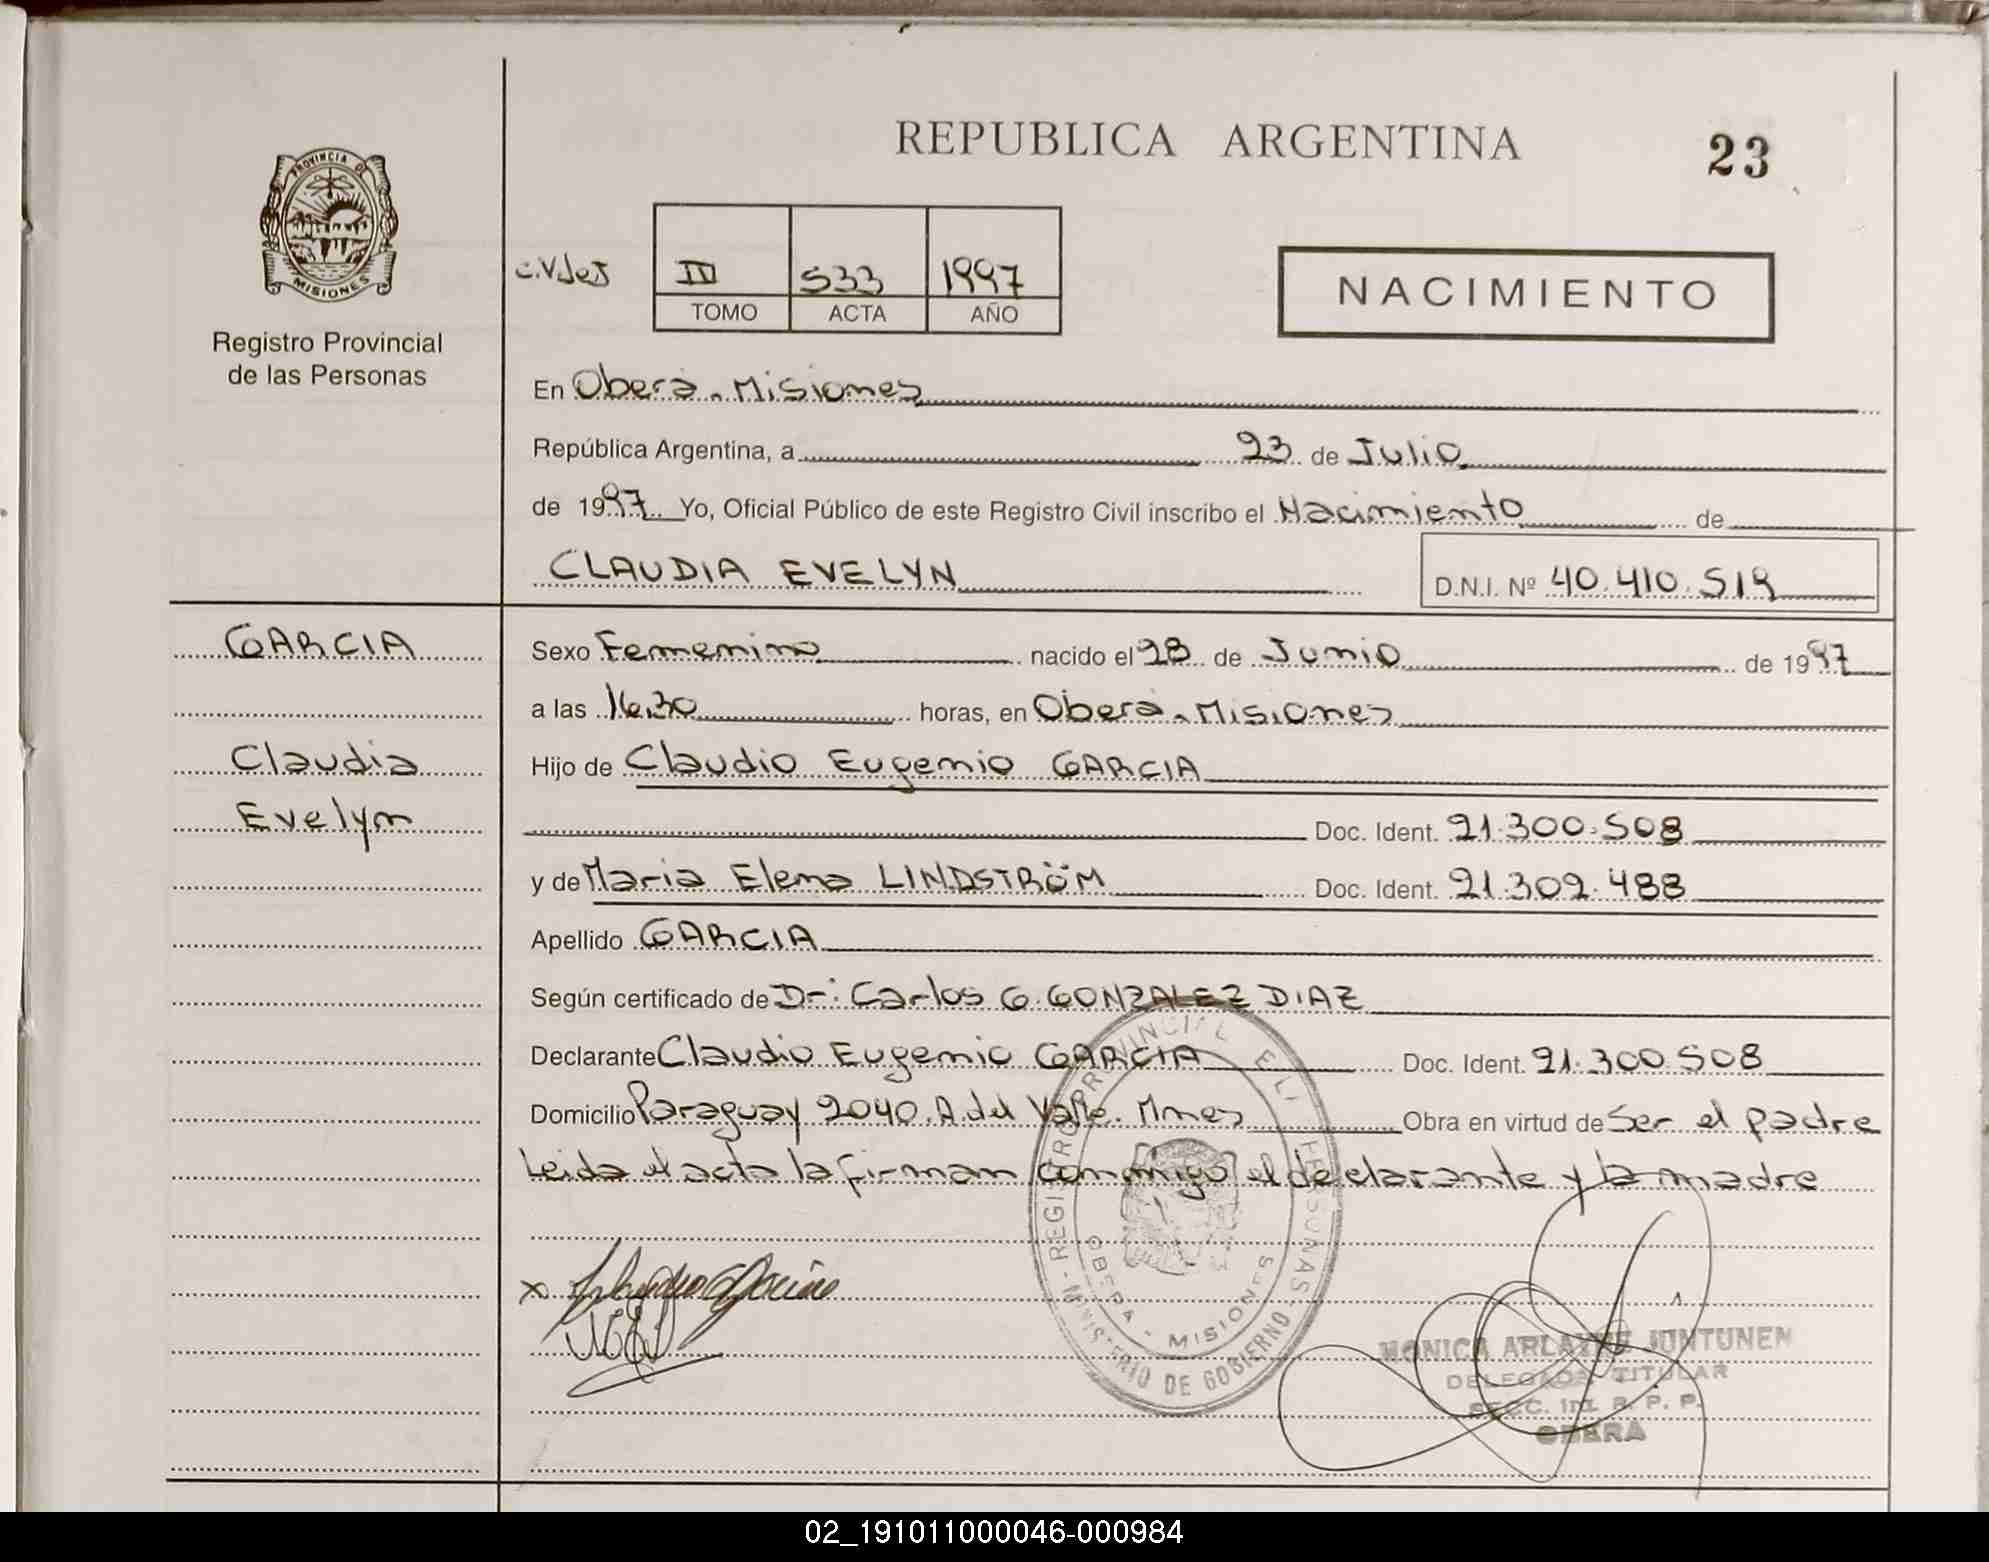 REPUBLICA ARGENTINA
23
PROVINCIA DE
MISIONES
Registro Provincial
de las Personas
III 533 1997
TOMO ACTA AÑO
NACIMIENTO
En Oberá. Misiones
República Argentina, a 23 de Julio
de 1997 Yo, Oficial Público de este Registro Civil inscribo el Nacimiento de
CLAUDIA EVELYN D.N.I. Nº 40.410.519
GARCIA
Claudia
Evelyn
Sexo Femenino nacido el 28 de Junio de 1997
a las 16,30 horas, en Oberá. Misiones
Hijo de Claudio Eugenio GARCIA
Doc. Ident. 21.300.508
y de Maria Elena LINDSTRÖM Doc. Ident. 21.302.488
Apellido GARCIA
Según certificado de Dr: Carlos G. GONZALEZ DIAZ
Declarante Claudio Eugenio GARCIA Doc. Ident. 21.300.508
Domicilio Paraguay 2040. A. del Valle. Mnes Obra en virtud de Ser el padre
Leida el acta la firman conmigo el declarante y la madre
REGISTRO PROVINCIAL PERSONAS
MINISTERIO DE GOBIERNO
OBERA - MISIONES
MONICA JUNTUNEN
DELEGADA TITULAR
R. P. P.
OBERA
02_191011000046-000984